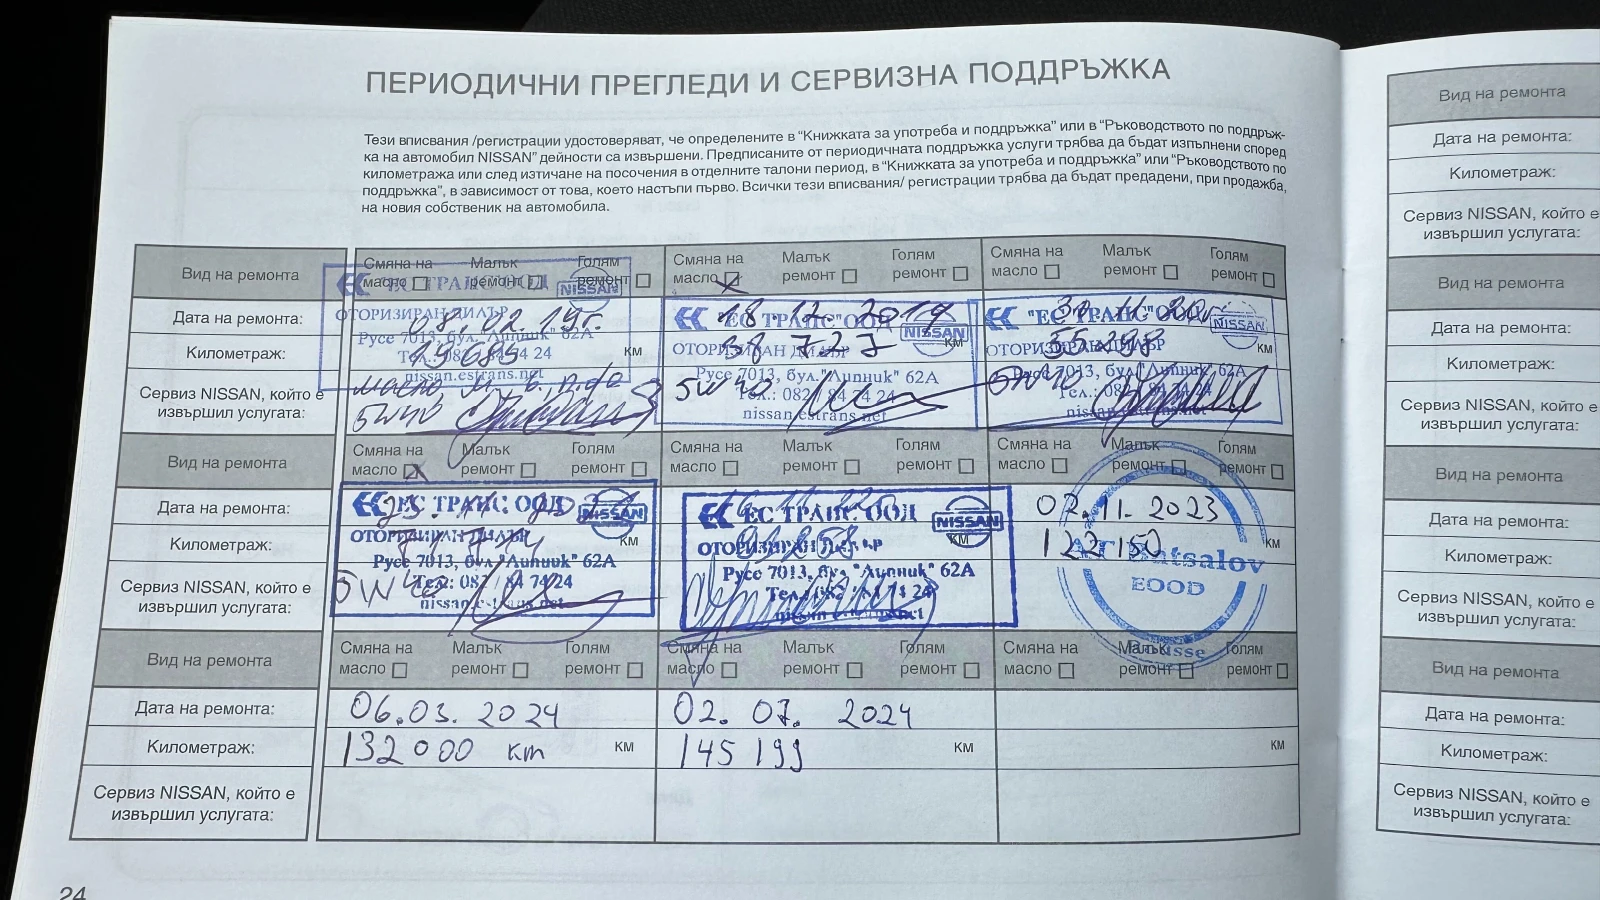 ПЕРИОДИЧНИ ПРЕГЛЕДИ И СЕРВИЗНА ПОДДРЪЖКА
Тези вписвания /регистрации удостоверяват, че определените в "Книжката за употреба и поддръжка" или в "Ръководството по поддръж-
ка на автомобил NISSAN" дейности са извършени. Предписаните от периодичната поддръжка услуги трябва да бъдат изпълнени според
километража или след изтичане на посочения в отделните талони период, в "Книжката за употреба и поддръжка" или "Ръководството по
поддръжка", в зависимост от това, което настъпи първо. Всички тези вписвания/ регистрации трябва да бъдат предадени, при продажба,
на новия собственик на автомобила.
Вид на ремонта
Смяна на масло Малък ремонт Голям ремонт
Смяна на масло Малък ремонт Голям ремонт
Смяна на масло Малък ремонт Голям ремонт
Дата на ремонта:
08.02.19г.
18.12.2019
Километраж:
км
38 727 км
км
Сервиз NISSAN, който е
извършил услугата:
ЕС ТРАНС ООД NISSAN
ОТОРИЗИРАН ДИЛЪР
Русе 7013, бул. "Липник" 62А
Тел.: 082 / 84 74 24
nissan.estrans.net
5W40
"ЕС ТРАНС" ООД NISSAN
ОТОРИЗИРАН ДИЛЪР
Русе 7013, бул."Липник" 62А
Тел.: 082 / 84 74 24
nissan.estrans.net
5W40
"ЕС ТРАНС" ООД NISSAN
ОТОРИЗИРАН ДИЛЪР
Русе 7013, бул."Липник" 62А
Тел.: 082 / 84 74 24
nissan.estrans.net
Вид на ремонта
Смяна на масло Малък ремонт Голям ремонт
Смяна на масло Малък ремонт Голям ремонт
Смяна на масло Малък ремонт Голям ремонт
Дата на ремонта:
02.11.2023
Километраж:
км
км
122 150 км
Сервиз NISSAN, който е
извършил услугата:
ЕС ТРАНС ООД NISSAN
ОТОРИЗИРАН ДИЛЪР
Русе 7013, бул."Липник" 62А
Тел.: 082 / 84 74 24
5W40
ЕС ТРАНС ООД NISSAN
ОТОРИЗИРАН
Русе 7013, бул."Липник" 62А
Тел.: 082 / 84 74 24
Batsalov
EOOD
Rousse
Вид на ремонта
Смяна на масло Малък ремонт Голям ремонт
Смяна на масло Малък ремонт Голям ремонт
Смяна на масло Малък ремонт Голям ремонт
Дата на ремонта:
06.03.2024
02.07. 2024
Километраж:
132000 km км
145 199 км
км
Сервиз NISSAN, който е
извършил услугата:
24
Вид на ремонта
Дата на ремонта:
Километраж:
Сервиз NISSAN, който е
извършил услугата:
Вид на ремонта
Дата на ремонта:
Километраж:
Сервиз NISSAN, който е
извършил услугата:
Вид на ремонта
Дата на ремонта:
Километраж:
Сервиз NISSAN, който е
извършил услугата:
Вид на ремонта
Дата на ремонта:
Километраж:
Сервиз NISSAN, който е
извършил услугата: